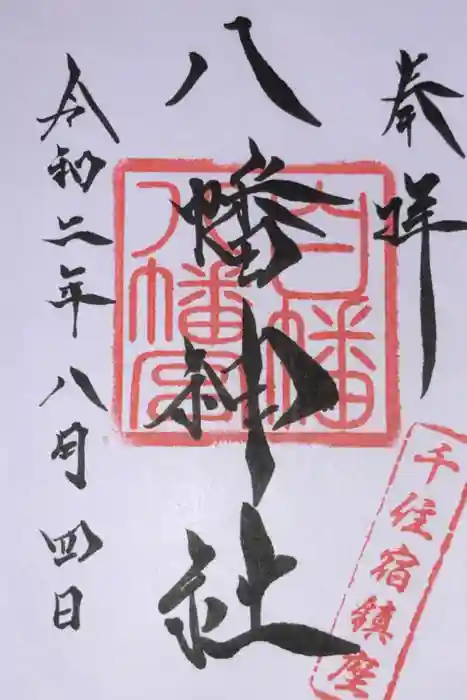 奉拝
八幡神社
令和二年八月四日
白幡八幡宮
千住宿鎮座